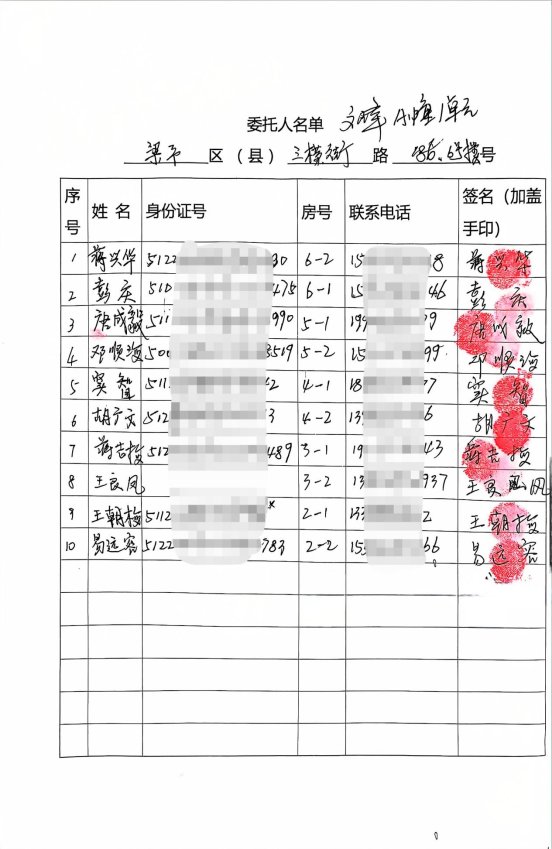 委托人名单 文峰A幢1单元
梁平 区（县） 三横街 路 号
序号 姓名 身份证号 房号 联系电话 签名（加盖手印）
1 蒋兴华 5122 30 6-2 15 18 蒋兴华
2 彭庆 510 475 6-1 15 46 彭庆
3 唐成毅 511 990 5-1 199 9 唐成毅
4 邓顺海 500 3519 5-2 15 99 邓顺海
5 窦智 511 2 4-1 18 7 窦智
6 胡广文 512 3 4-2 13 6 胡广文
7 蒋吉梅 512 489 3-1 19 43 蒋吉梅
8 王良凤 3-2 13 937 王良凤
9 王朝梅 5112 2-1 13 2 王朝梅
10 易远容 5122 983 2-2 15 66 易远容